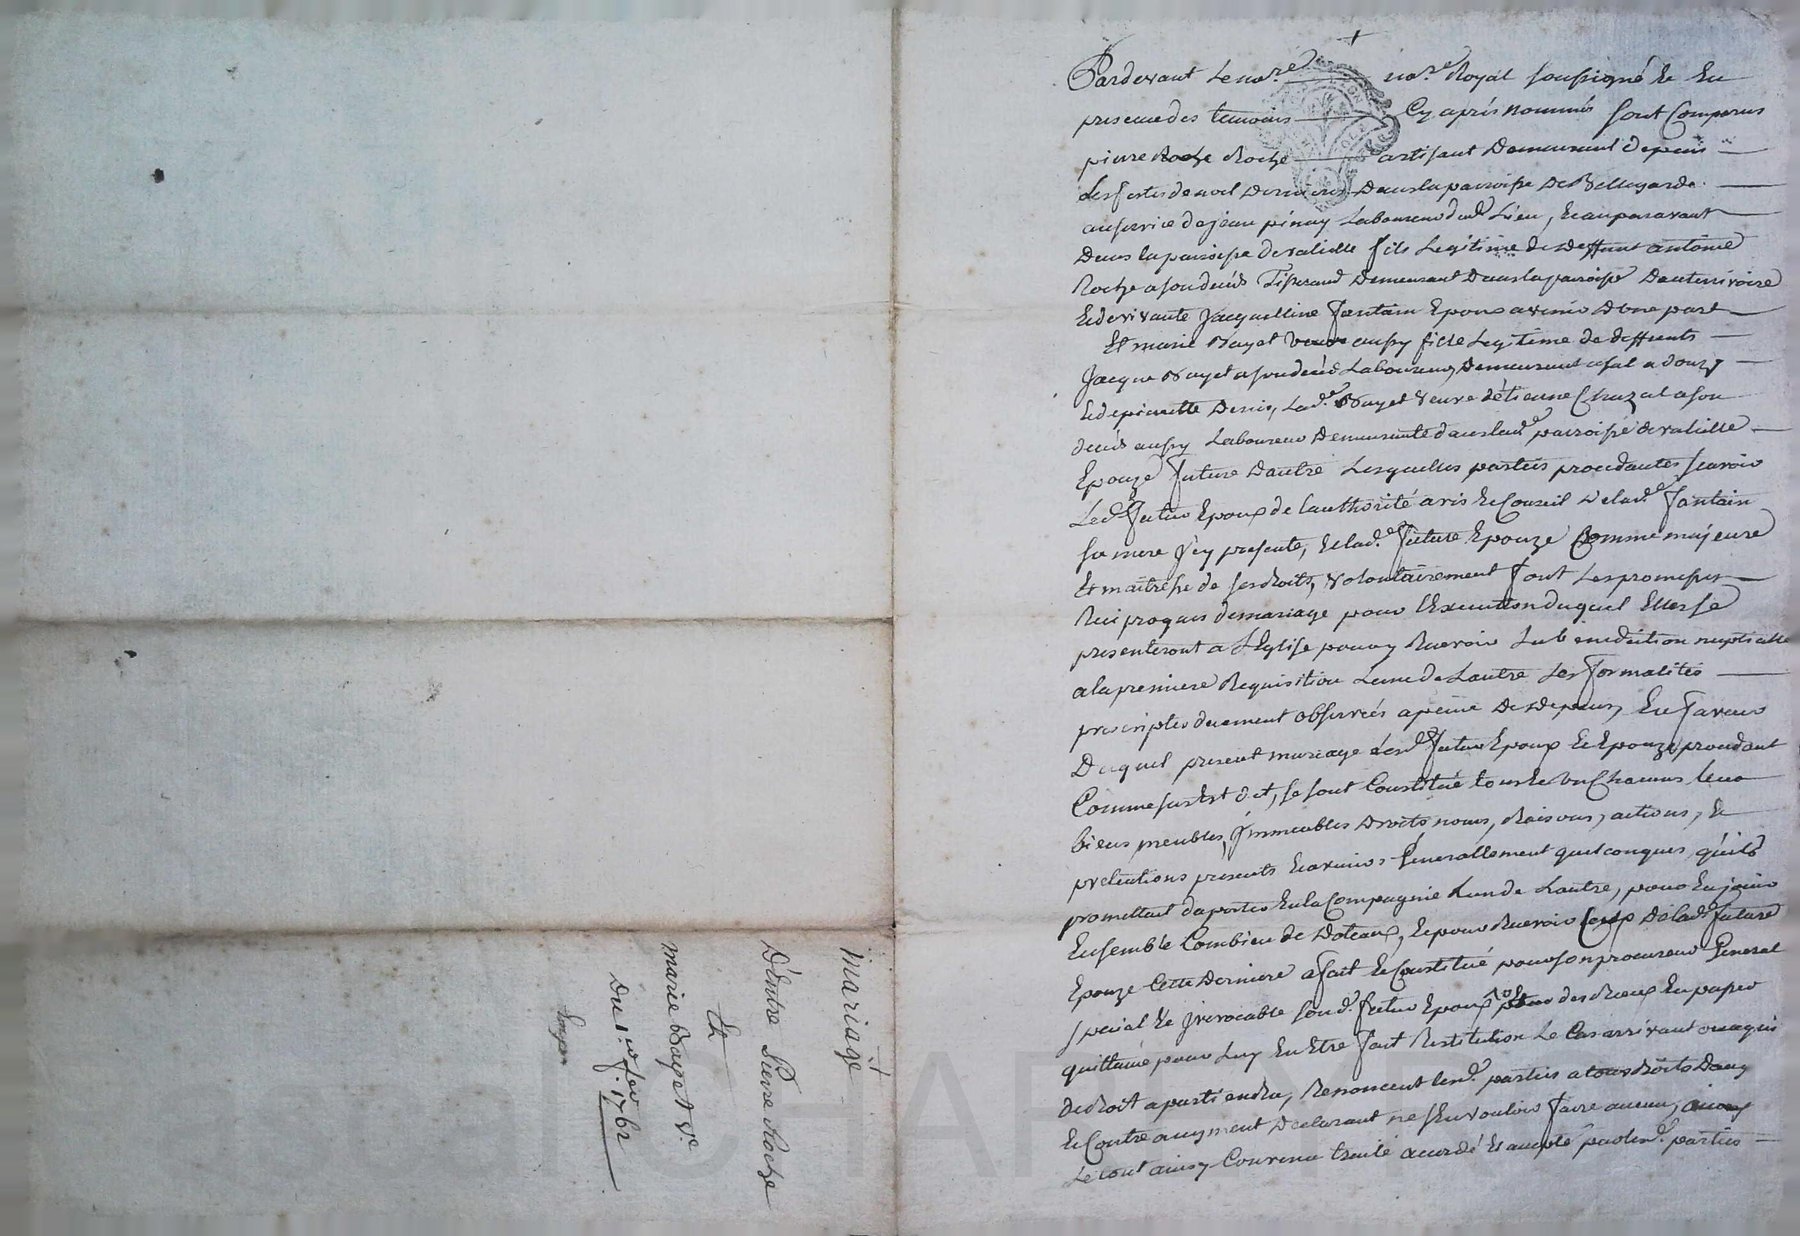 Pardevant le no.re no.re Royal soussigné Et En
presence des temoins Cy aprés nommés sont Comparus
pierre Roche artisant Demeurant depuis
les festes de noel dernieres Dans la paroisse De Bellegarde
au service de jean pinay Laboureur dud. Lieu, Et auparavant
Dans la paroisse de valeille fils Legitime de deffunt antoine
Roche a son decés Tisserand Demeurant Dans la paroisse Dauterivoire
Et de vivante Jacquelline fontain Epoux avenir Dune part
Et marie Bayet aussy fille Legitime de deffunts
Jacque Bayet a son decéd Laboureur, Demeurant a sal a donzy
Et de pierrette Denis, Lad.e Bayet veuve d'étienne Chazal a son
decéd aussy Laboureur Demeurante dans lad.e paroisse de valeille
Epouze future Dautre Lesquelles parties procedantes scavoir
Led. futur Epoux de lauthorité avis Et Conseil De lad.e fontain
sa mere J'cy presente, Et lad.e future Epouze Comme majeure
Et maitresse de ses droits, volontairement font Les promesses
Reciproques de mariage pour l'Execution duquel Elles se
presenteront a l'Eglise pour y Recevoir La bénédiction nuptialle
a la premiere Requisition L'une de Lautre Les formalités
prescriptes duement observées a peine De depens, En faveur
Duquel present mariage Lesd. futur Epoux Et Epouze procedant
Comme sus Est dit, se sont Constitué tous Et un Chacuns leur
biens meubles, Jmmeubles Droits noms, Raisons, actions, Et
pretentions presents Et avenirs Generallement quelconques qu'ils
promettent daporter En la Compagnie Lun de Lautre, pour En jouir
Ensemble Combien de Dotaux, Et pour Recevoir Ceux De lad.e future
Epouze Cette Derniere a fait Et Constitué pour son procureur General
special Et Jrrevocable sond. futur Epoux des Receux En passer
quittance pour Luy En Etre fait Restitution Le Cas arrivant ou a qui
de droit apartiendra, Renoncent lesd. parties a tous droits Daug
Et Contre augment Declarant ne s'En vouloir faire aucun,
Le tout ainsy Convenu traité accordé Et accepté par lesd. parties
mariage
D'éntre Pierre Roche
Et
marie Bayet v.e
Du 1.er fev.er 1762